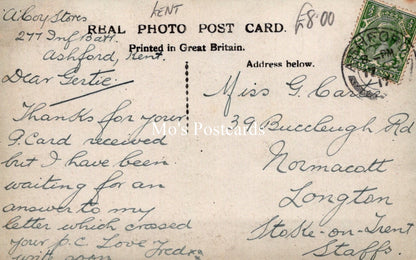 "A" Coy Stores
277 Inf Batt.
Ashford, Kent.
KENT
£8.00
REAL PHOTO POST CARD.
Printed in Great Britain.
Address below.
Dear Gertie.
Thanks for your
P. Card received
but I have been
waiting for an
answer to my
letter which crossed
your p.c. Love Fred xx
soon
Miss G.
39 Buccleugh Rd
Normacott
Longton
Stoke-on-Trent
Staffs.
Mo's Postcards